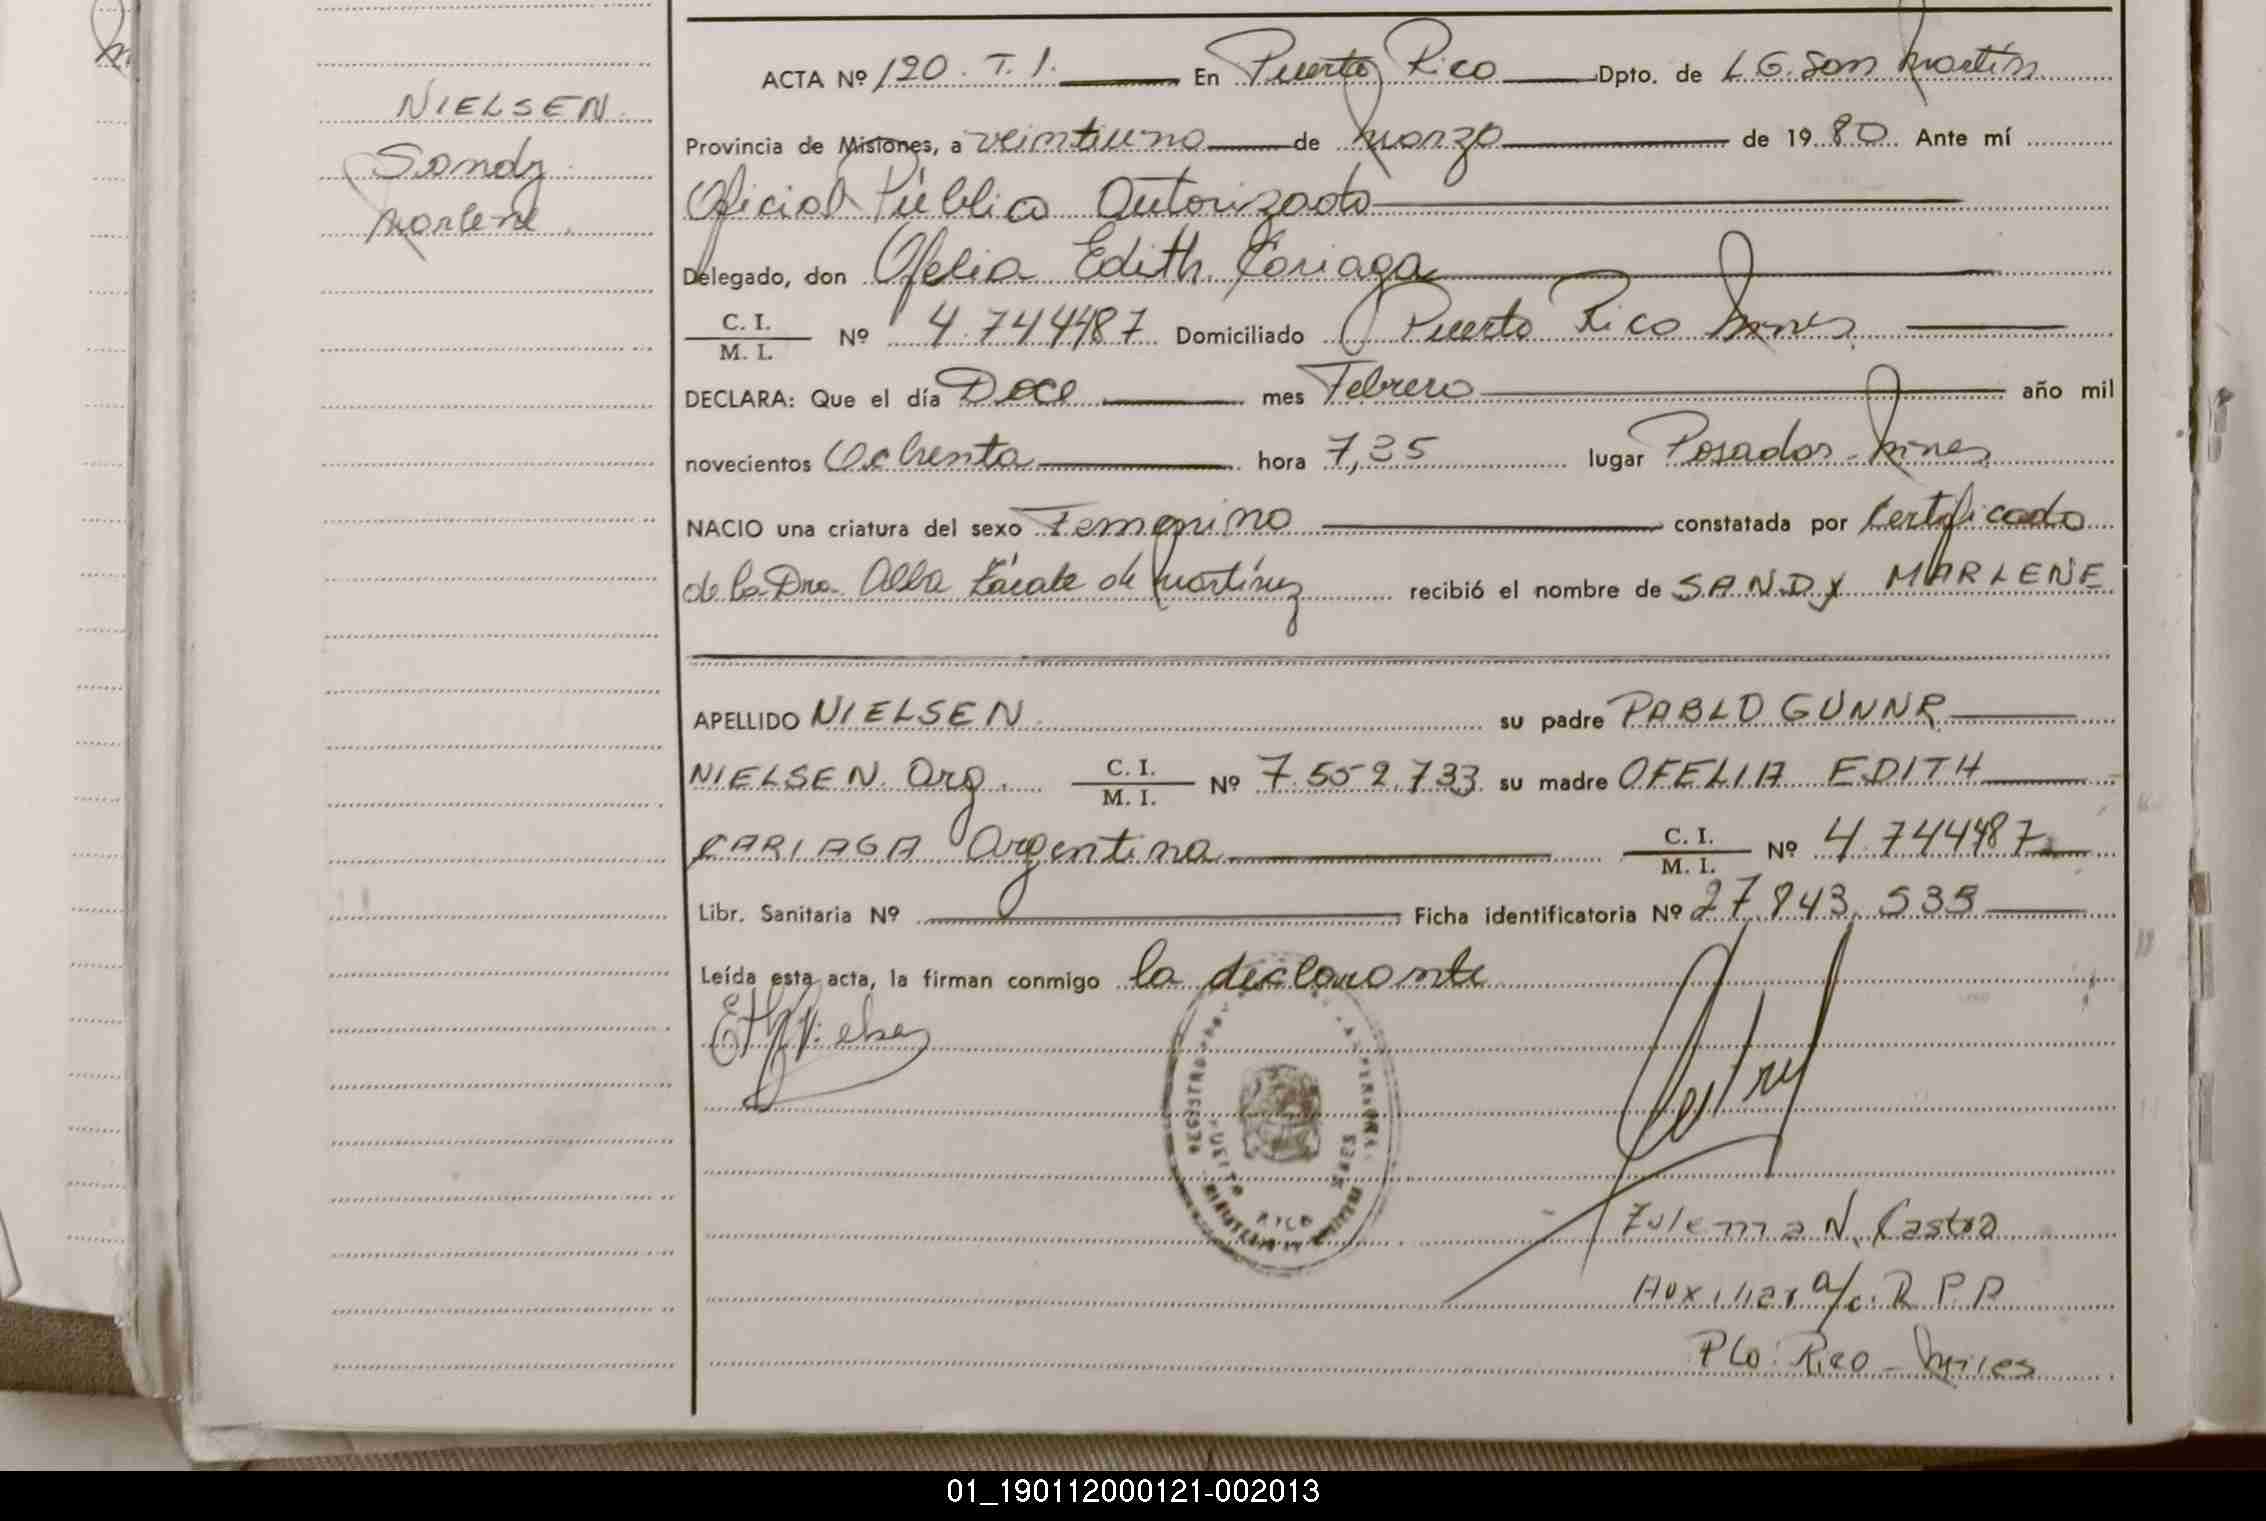 NIELSEN
Sandy
Marlene
ACTA Nº 120. T. I. En Puerto Rico Dpto. de L. G. San Martín
Provincia de Misiones, a veintiuno de Marzo de 1980. Ante mí
Oficial Público Autorizado
Delegado, don Ofelia Edith Cariaga
C. I. / M. I. Nº 4.744487 Domiciliado Puerto Rico Mnes
DECLARA: Que el día Doce mes Febrero año mil
novecientos Ochenta hora 7,35 lugar Posadas - Mnes
NACIO una criatura del sexo Femenino constatada por Certificado
de la Dra. Alba Zárate de Martínez recibió el nombre de SANDY MARLENE
APELLIDO NIELSEN su padre PABLO GUNNR
NIELSEN. Arg. C. I. / M. I. Nº 7.552.733 su madre OFELIA EDITH
CARIAGA Argentina C. I. / M. I. Nº 4.744487
Libr. Sanitaria Nº Ficha identificatoria Nº 27.843.535
Leída esta acta, la firman conmigo la declarante
REGISTRO
PUERTO RICO
MNES
Zulema N. Castro
Auxiliar a/c. R P P
Pto. Rico - Mnes
01_190112000121-002013